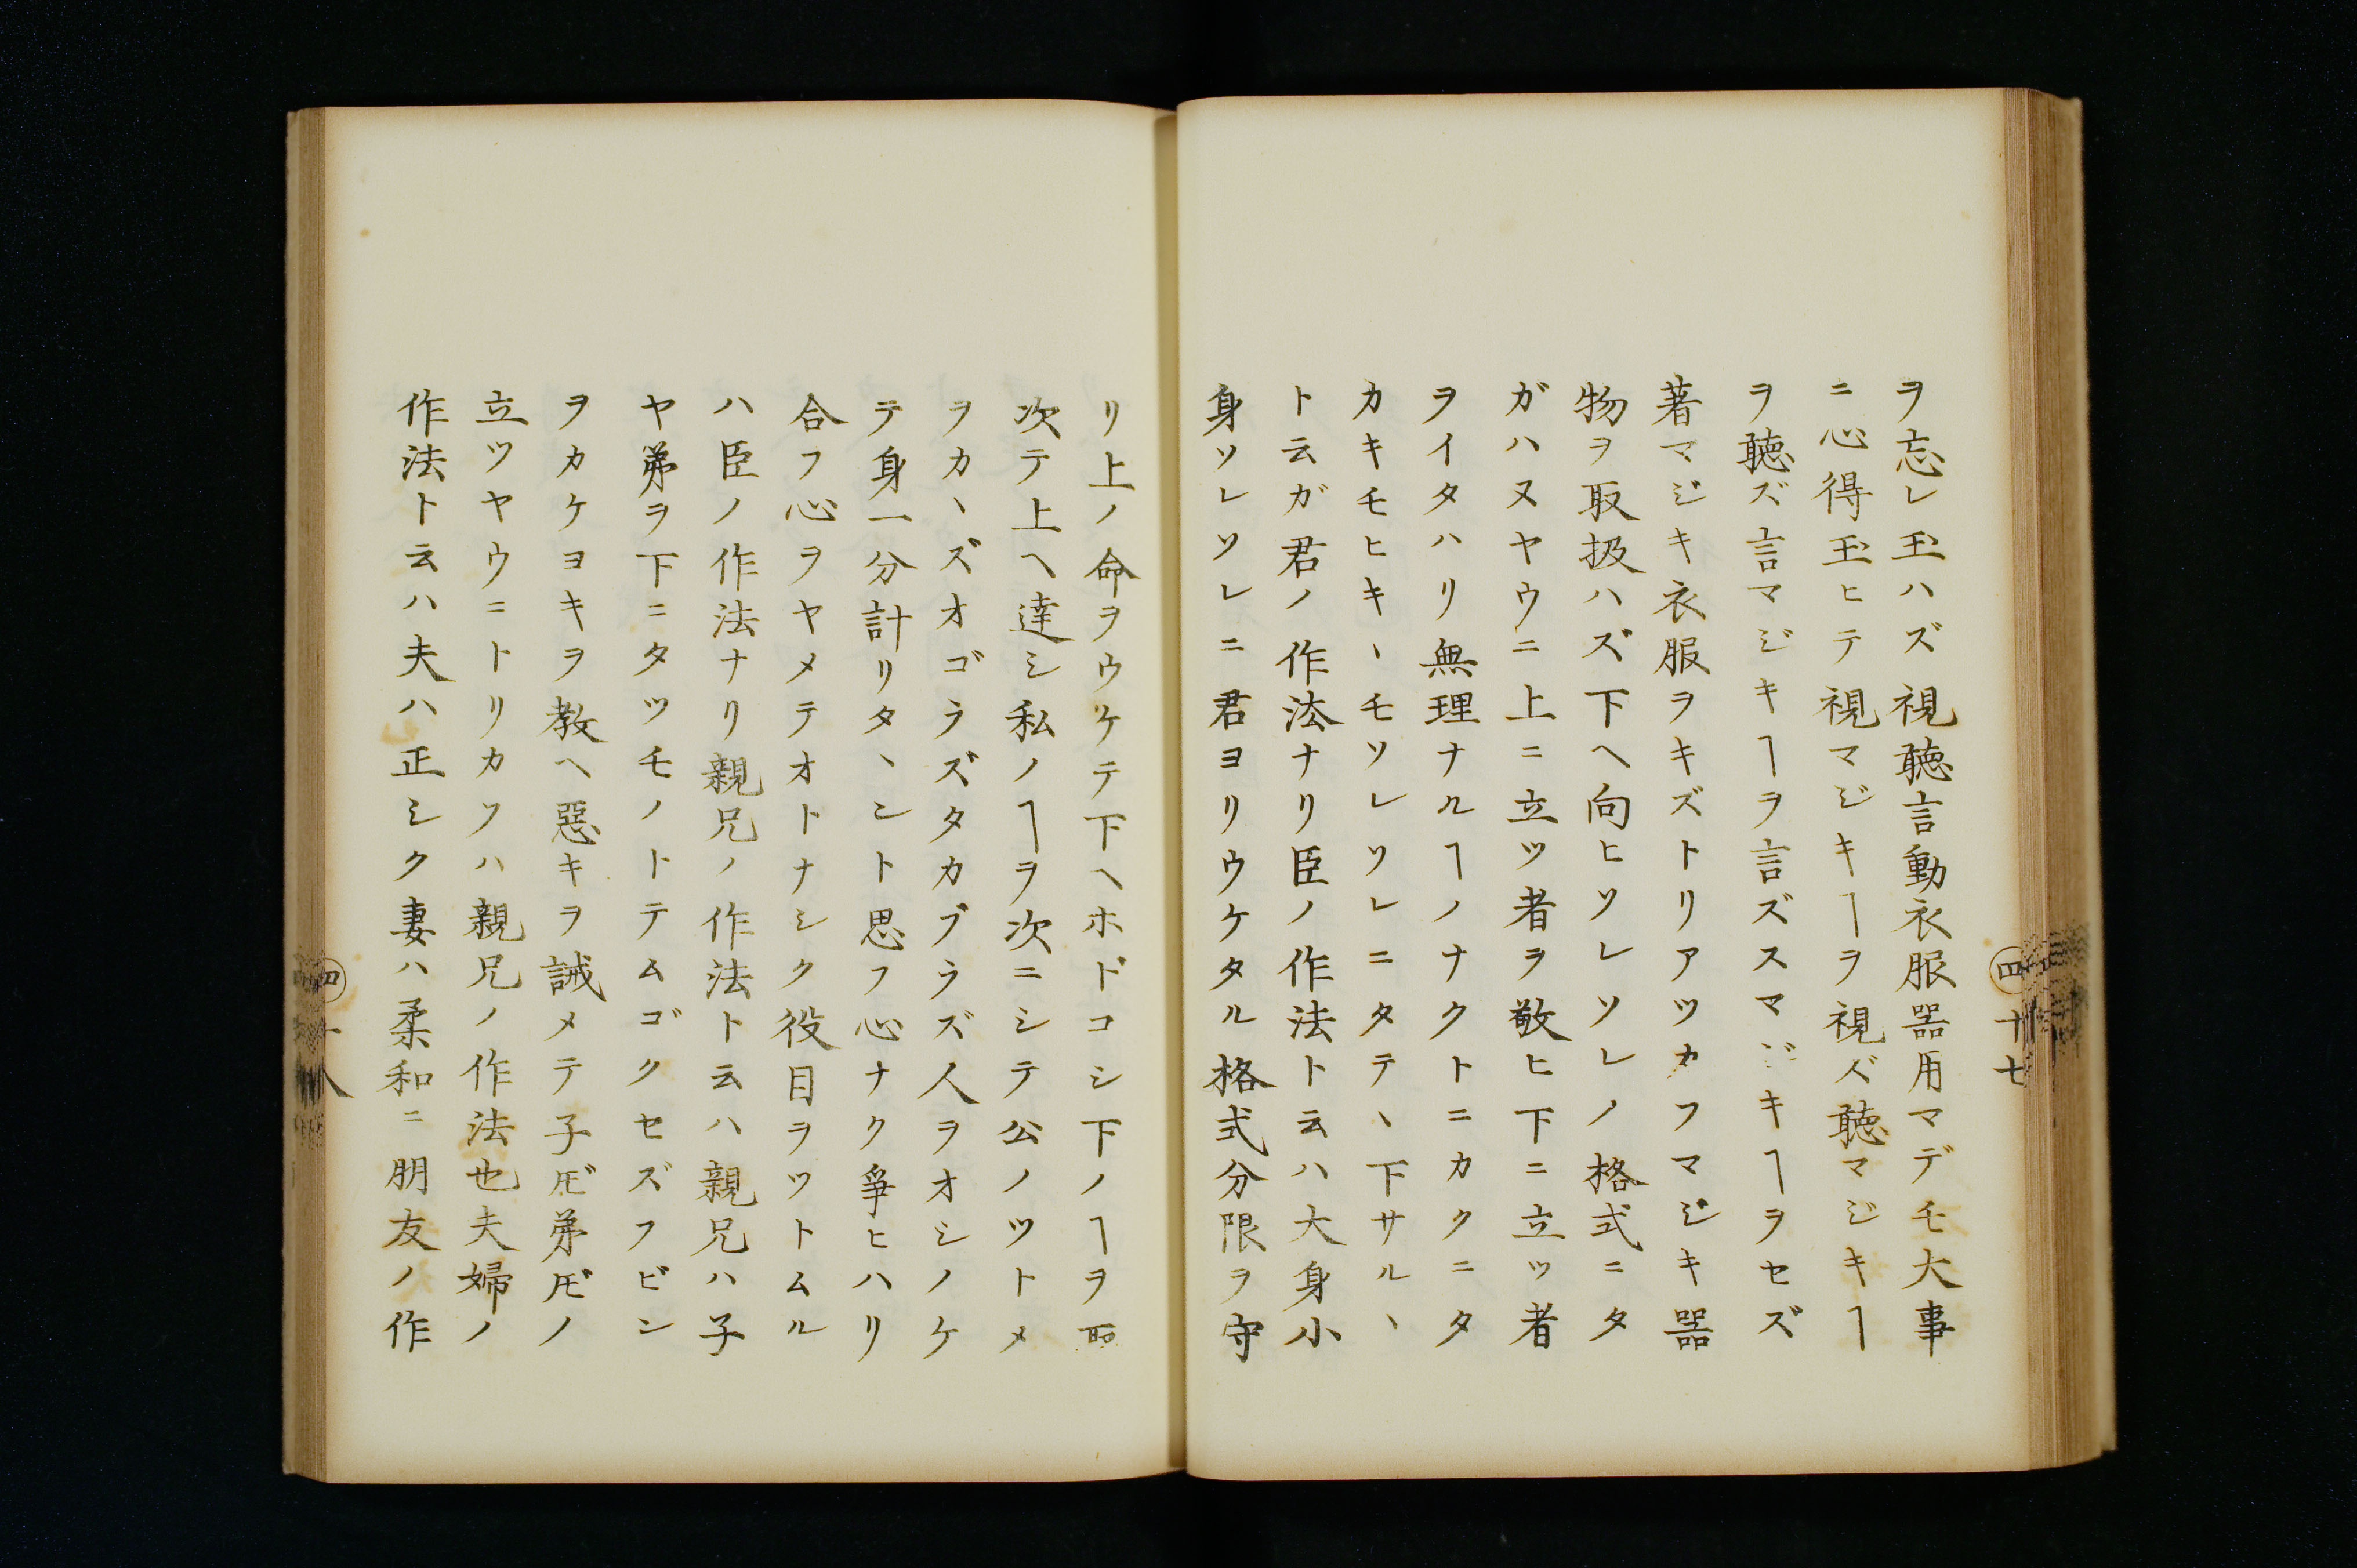 ヲ忘レ玉ハズ視聴言動衣服器用マデモ大事
ニ心得玉ヒテ視マジキヿヲ視ズ聴マジキヿ
ヲ聴ズ言マジキヿヲ言ズスマジキヿヲセズ
著マジキ衣服ヲキズトリアツカフマジキ器
物ヲ取扱ハズ下ヘ向ヒソレソレノ格式ニタ
ガハヌヤウニ上ニ立ツ者ヲ敬ヒ下ニ立ツ者
ヲイタハリ無理ナルヿノナクトニカクニタ
カキモヒキヽモソレソレニタテヽ下サルヽ
ト云ガ君ノ作法ナリ臣ノ作法ト云ハ大身小
身ソレソレニ君ヨリウケタル格式分限ヲ守
四 十七
リ上ノ命ヲウケテ下ヘホドコシ下ノヿヲ取
次テ上ヘ達シ私ノヿヲ次ニシテ公ノツトメ
ヲカヽズオゴラズタカブラズ人ヲオシノケ
テ身一分計リタヽント思フ心ナク爭ヒハリ
合フ心ヲヤメテオトナシク役目ヲツトムル
ハ臣ノ作法ナリ親兄ノ作法ト云ハ親兄ハ子
ヤ弟ヲ下ニタツモノトテムゴクセズフビン
ヲカケヨキヲ教ヘ惡キヲ誡メテ子ドモ弟ドモノ
立ツヤウニトリカフハ親兄ノ作法也夫婦ノ
作法ト云ハ夫ハ正シク妻ハ柔和ニ朋友ノ作
四 十八